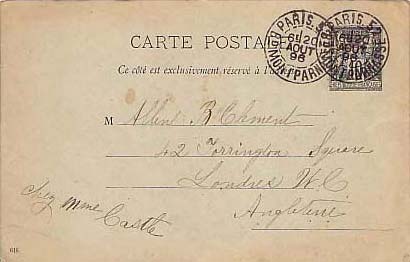 CARTE POSTA
Ce côté est exclusivement réservé à l'a
PARIS
6E 20
AOUT
96
MONTPARNASSE
PARIS
6E 20
AOUT
96
M Albert B Clément
42 Torrington Square
Londres W.C
Angleterre
chez Mme
Castle
616